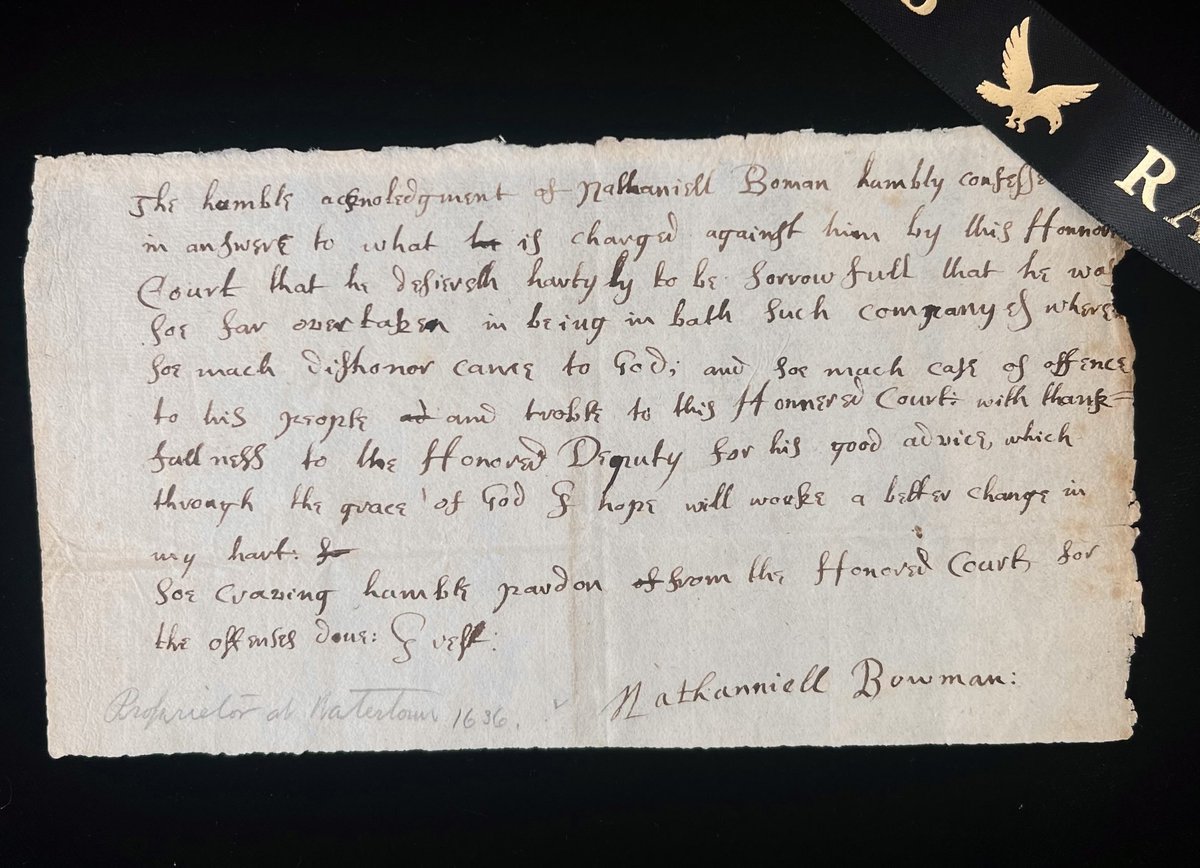 The humble acknoledgment of Nathaniell Boman humbly confesse
in answere to what he is charged against him by this Honnor
Court that he desiereth hartyly to be sorrowfull that he was
soe far overtaken in being in bath such companyes where
soe much dishonor came to God; and soe much case of offence
to his people ad and troble to this Honnered Court: with thank=
fullness to the Honored Deputy for his good advice, which
through the grace of God I hope will worke a better change in
my hart: so
Soe Craving humble pardon of from the Honored Court for
the offenses done: I rest:
Nathanniell Bowman:
Proprietor at Watertown 1636.
RA